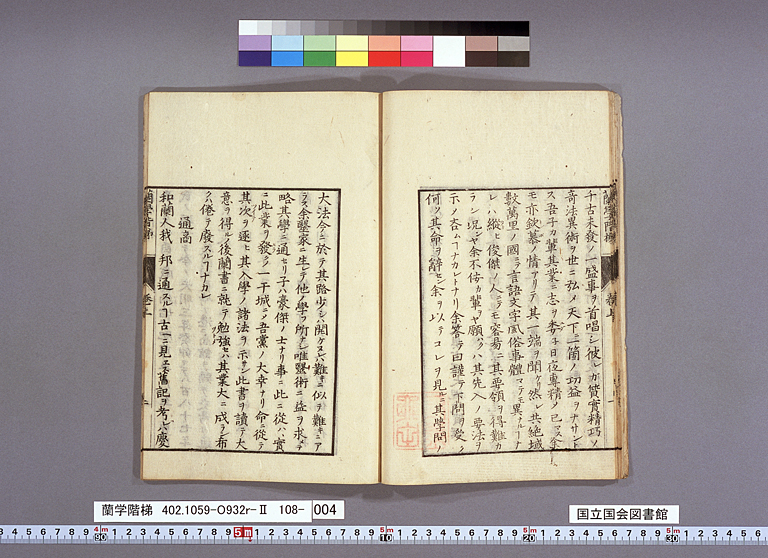 千古未發ノ一盛事ヲ首唱シ彼レガ質實精巧ノ
奇法異術ヲ世ニ弘メ天下ニ一箇ノ功益ヲナサント
ス吾子カ輩其業ニ志ヲ委子日夜專精ノミス余
モ亦欽慕ノ情アリテ其一端ヲ聞ク然レ共絶域
數萬里ノ國ニテ言語文字風俗事體マテモ異ナルコナ
レハ縱ヒ俊傑ノ人ニテモ容易ニ其要領ヲ得難カ
ラン況ンヤ余不侫カ輩ヲヤ願クハ其先入ノ要法ヲ
示ノ吝ムコナカレトナリ余答テ曰謹テ下問ヲ受ク
何ソ其命ヲ辭セン余ヲ以テコレヲ見ルニ其學問ノ
大法今ニ於テ其路少シハ開ケヌレバ難キニ似ヲ難キニア
ラス余醫家ニ生レテ他ノ學フ所ナシ唯醫術ニ益ヲ求メテ
略其學ニ通セリ子ハ豪傑ノ士ナリ事ニ此ニ從ハ實
ニ此業ヲ發ノ一干城ニノ吾黨ノ大幸ナリ命ニ從テ
其次ヲ逐ヒ其入學ノ諸法ヲ示サン此書ヲ讀テ大
意ヲ得ルノ後蘭書ニ就テ勉強セハ其業大ニ成ラン布
クハ倦テ廢スルコナカレ
通商
和蘭人我カ邦ニ通スルコ古ニ見エズ舊記ヲ考レハ慶
蘭學階梯 巻上
蘭學階梯 巻上
蘭学階梯 402.1059-O932r-Ⅱ 108- 004
国立国会図書館